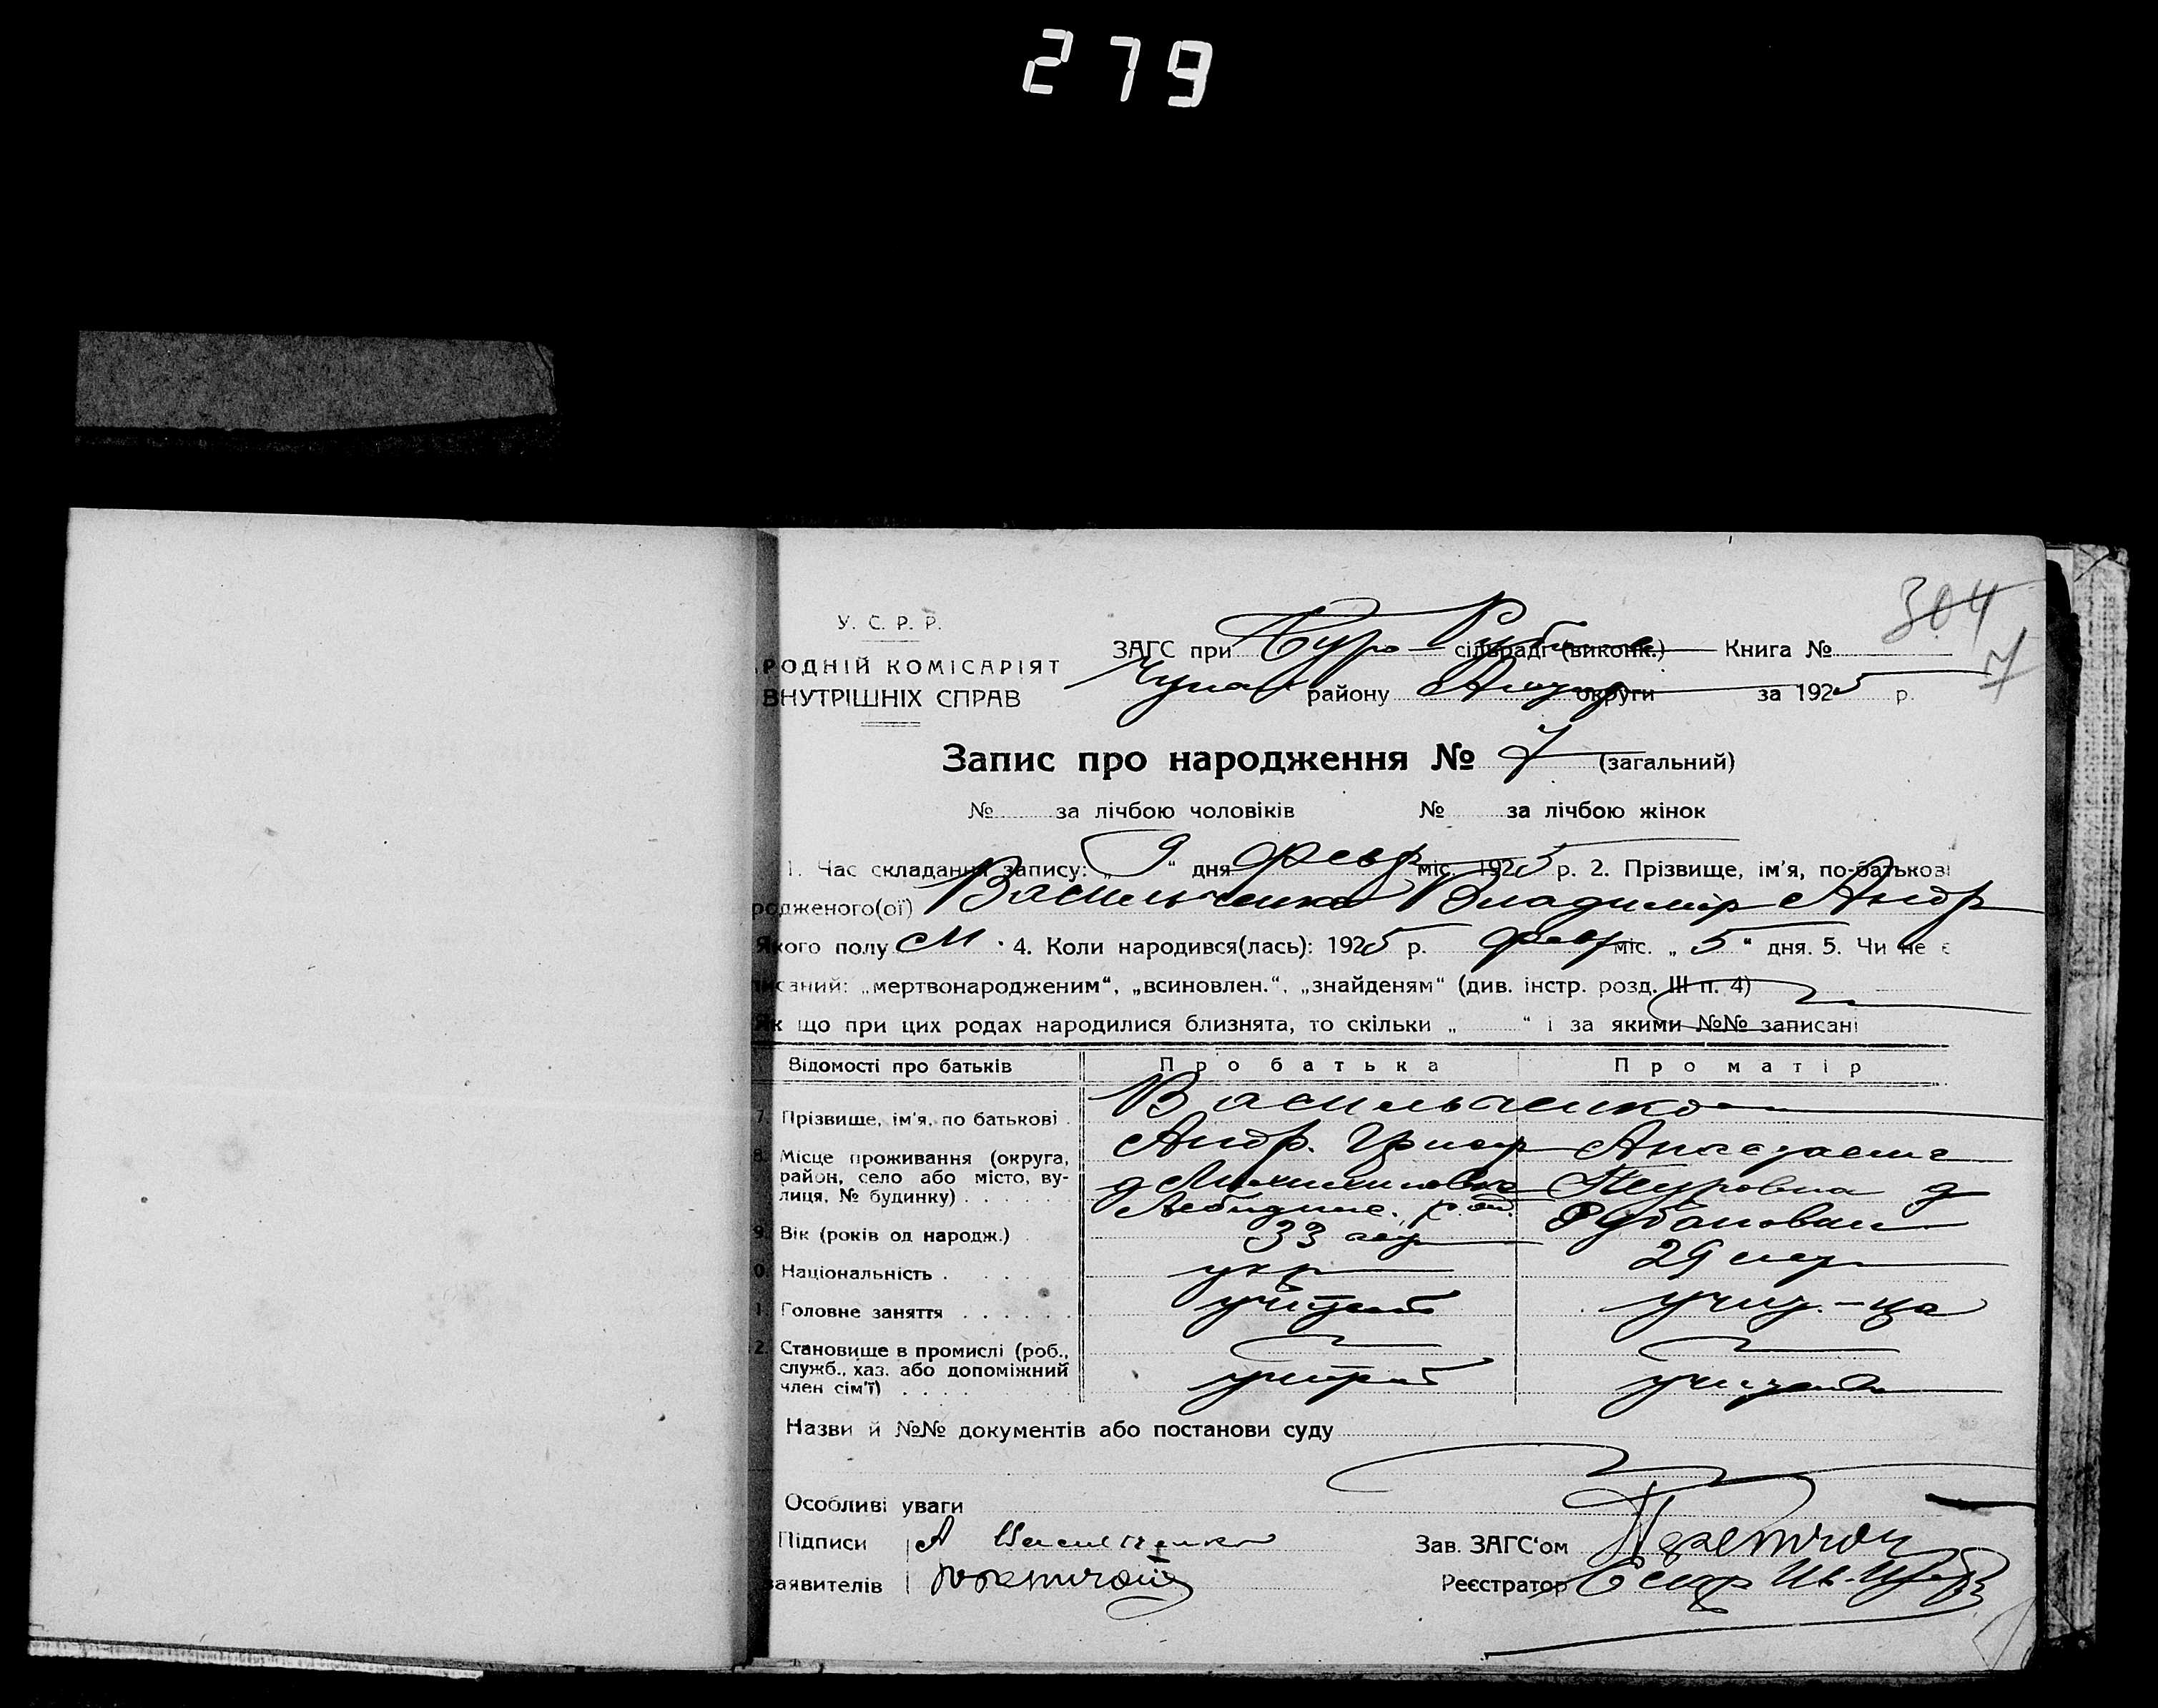 279
304
7
У. С. Р. Р.
РОДНІЙ КОМІСАРІЯТ
ВНУТРІШНІХ СПРАВ
ЗАГС при Буро- сільраді (виконк.) Книга №
району округи за 1925 р.
Запис про народження № 7 (загальний)
№ за лічбою чоловіків № за лічбою жінок
1. Час складання запису: „9“ дня февр міс. 1925 р. 2. Прізвище, ім'я, по-батькові
родженого(ої) Васильченко Владимир Андр
якого полу М. 4. Коли народився(лась): 1925 р. февр міс. „5“ дня. 5. Чи не є
писаний: „мертвонародженим“, „всиновлен.“, „знайденям“ (див. інстр. розд. III п. 4)
Як що при цих родах народилися близнята, то скільки „ “ і за якими №№ записані
Відомості про батьків Про батька Про матір
7. Прізвище, ім'я, по батькові . Васильченко
Андр. Григор Анастасия
8. Місце проживання (округа, район, село або місто, вулиця, № будинку) . . . . .
Петровна
9. Вік (років од народж.) 33 29
0. Національність . укр
1. Головне заняття . . . . . . учитель учит.-ца
2. Становище в промислі (роб., служб., хаз. або допоміжний член сім'ї) . . . .
учитель
Назви й №№ документів або постанови суду
Особливі уваги
Підписи А Васильченко Зав. ЗАГС'ом
заявителів Реєстратор